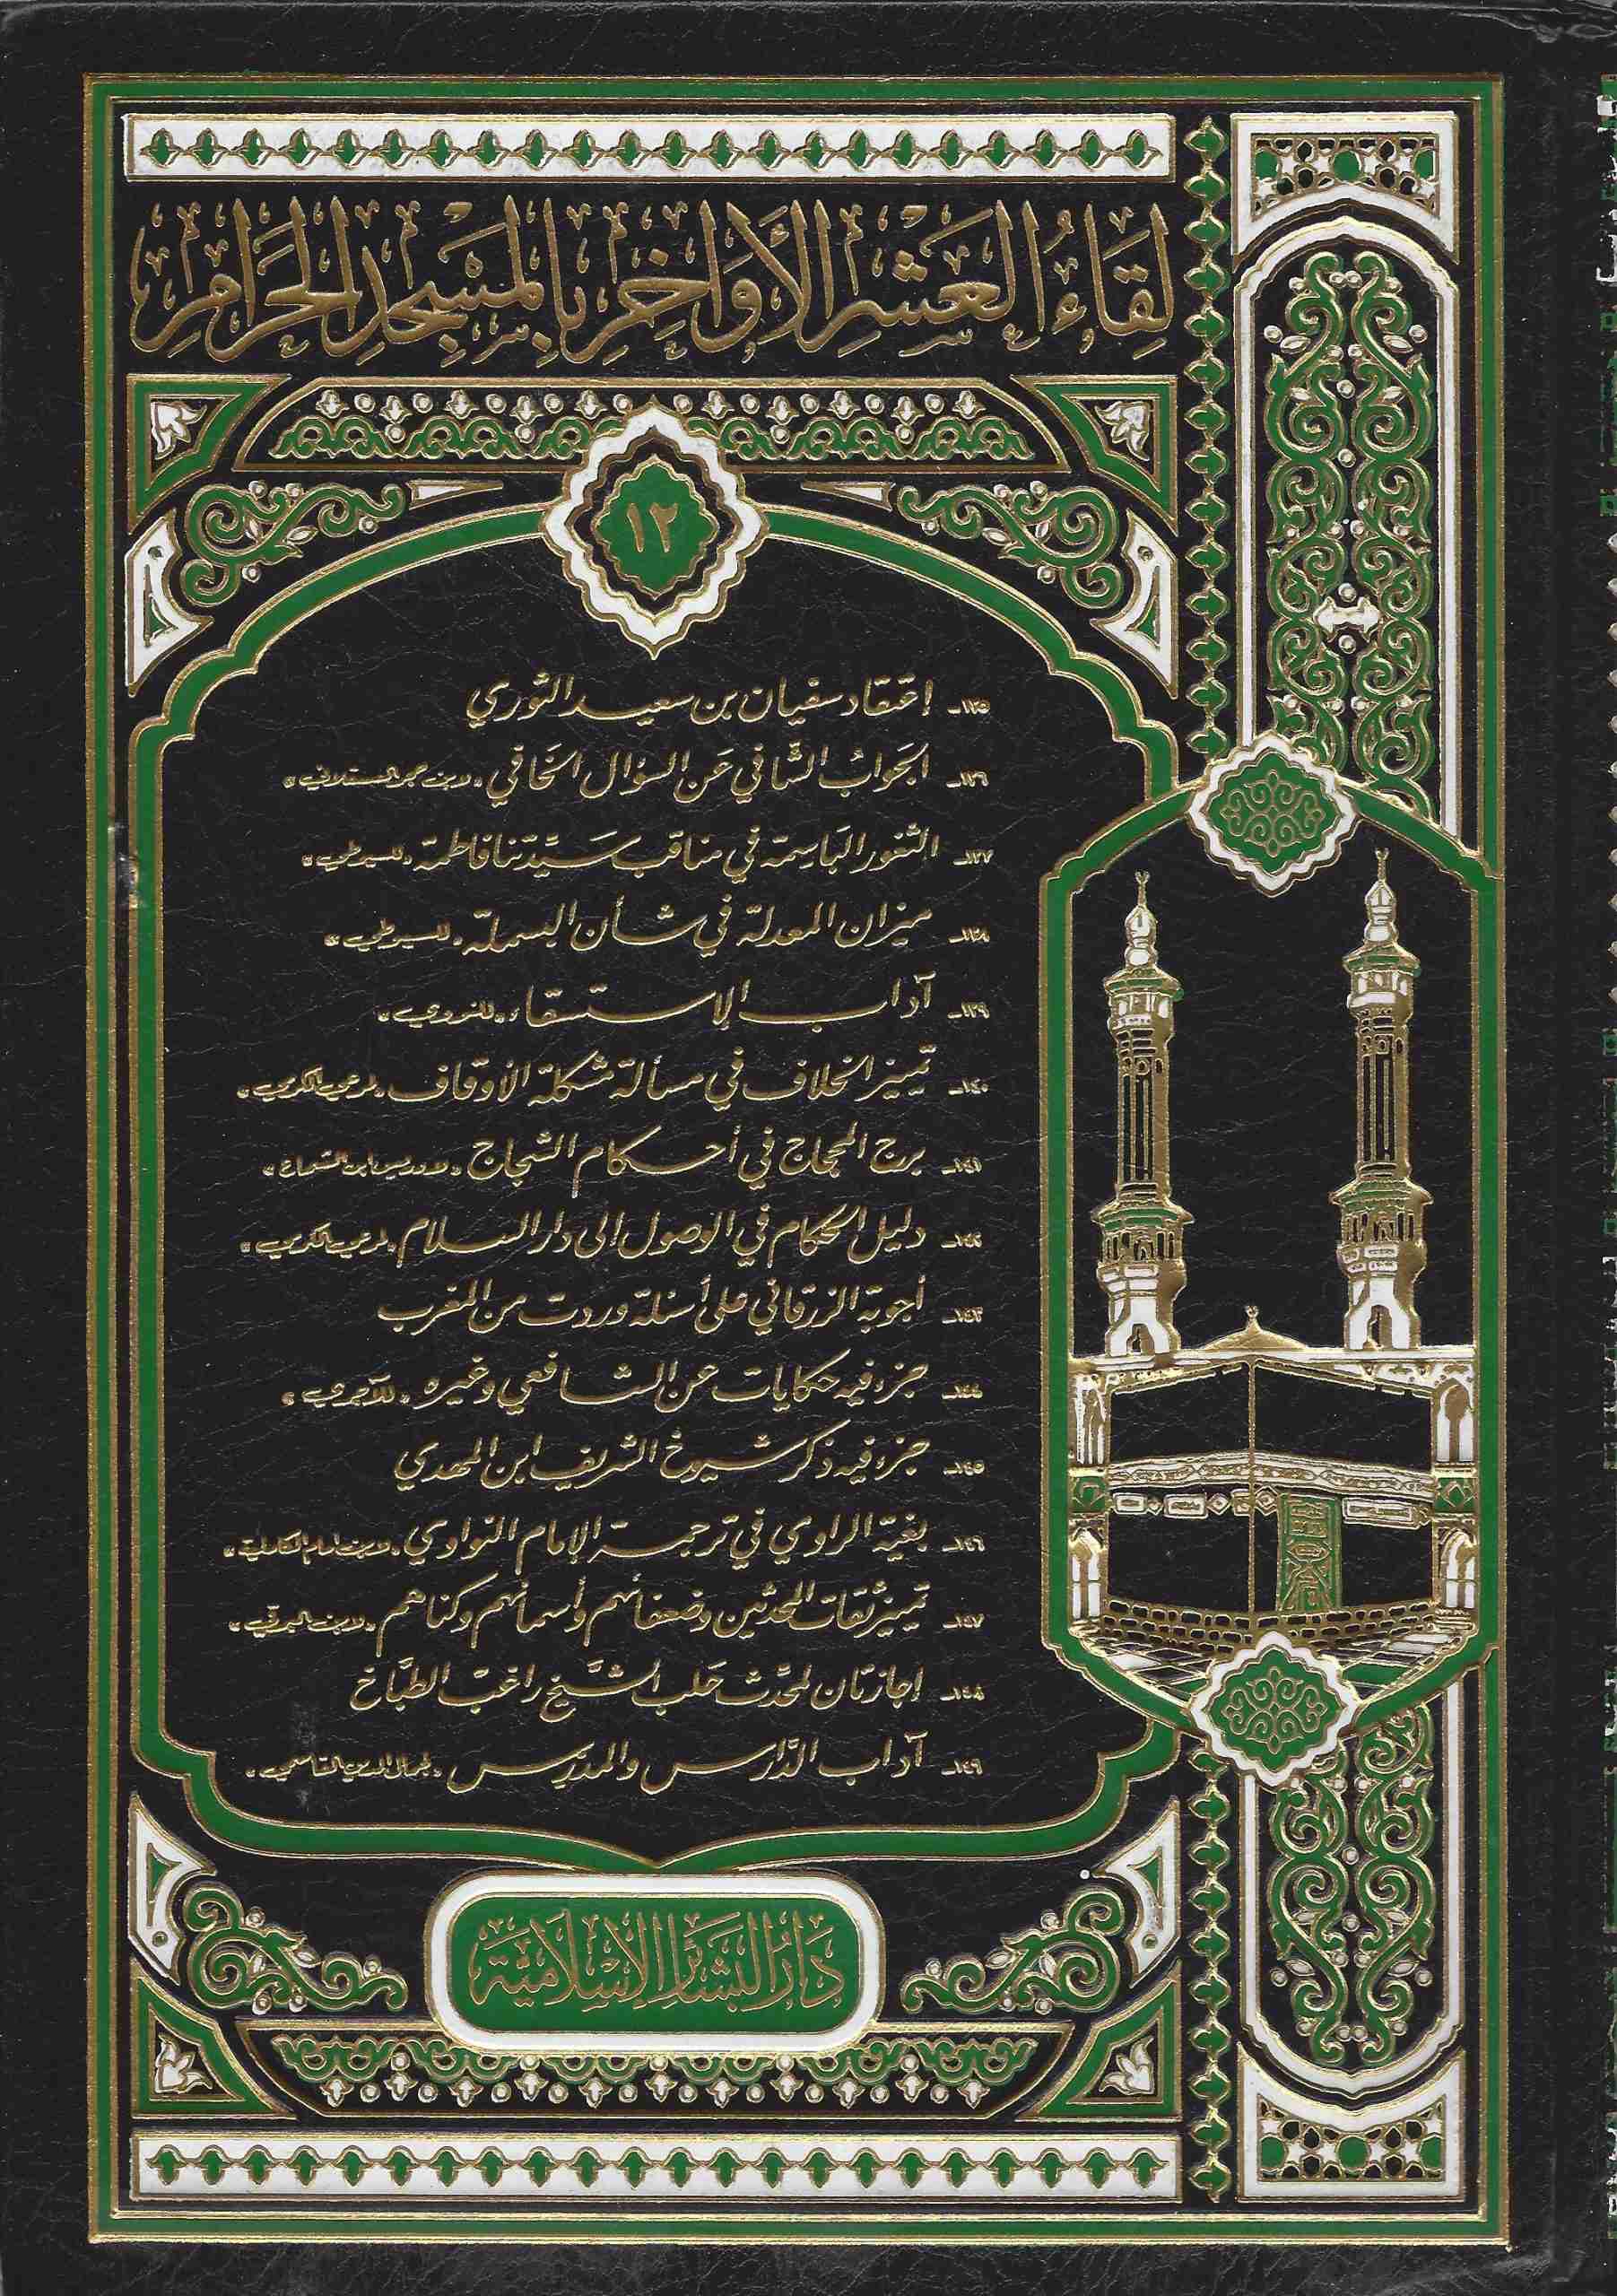 لِقَاءُ العَشْرِ الأَوَاخِرِ بِالمَسْجِدِ الحَرَامِ
١٢
١٣٥- اعتقاد سفيان بن سعيد الثوري
١٣٦- الجواب الشافي عن السؤال الخافي «لابن حجر العسقلاني»
١٣٧- الثغور الباسمة في مناقب سيدتنا فاطمة «للسيوطي»
١٣٨- ميزان المعدلة في شأن البسملة «للسيوطي»
١٣٩- آداب الاستسقاء «للنووي»
١٤٠- تمييز الخلاف في مسألة مشكلة الأوقاف «لمرعي الكرمي»
١٤١- برج المحجاج في أحكام الشجاج «لإدريس ابن الشماع»
١٤٢- دليل الحكام في الوصول إلى دار السلام «لمرعي الكرمي»
١٤٣- أجوبة الزرقاني على أسئلة وردت من المغرب
١٤٤- جزء فيه حكايات عن الشافعي وغيره «للآجري»
١٤٥- جزء فيه ذكر شيوخ الشريف ابن المهدي
١٤٦- بغية الراوي في ترجمة الإمام النواوي «لابن إمام الكاملية»
١٤٧- تمييز ثقات المحدثين وضعفائهم وأسمائهم وكناهم «لابن البرقي»
١٤٨- إجازتان لمحدّث حلب الشّيخ راغب الطبّاخ
١٤٩- آداب الدّارس والمدرّس «لجمال الدين القاسمي»
دَارُ البَشَائِرِ الإِسْلَامِيَّة